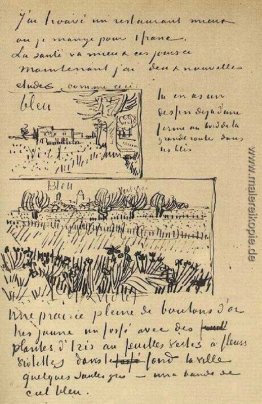 J'ai trouvé un restaurant mieux
où je mange pour 1 franc.
La santé va mieux ces jours ci
Maintenant j'ai deux nouvelles
études comme ceci
bleu
tu en as un
dessin déjà d'une
ferme au bord de la
grande route dans
les blés
Bleu
Une prairie pleine de boutons d'or
très jaune un fossé avec des
plantes d'Iris au feuilles vertes à fleurs
violettes dans le fond la ville
quelques saules gris – une bande de
ciel bleu.
www.malereikopie.de